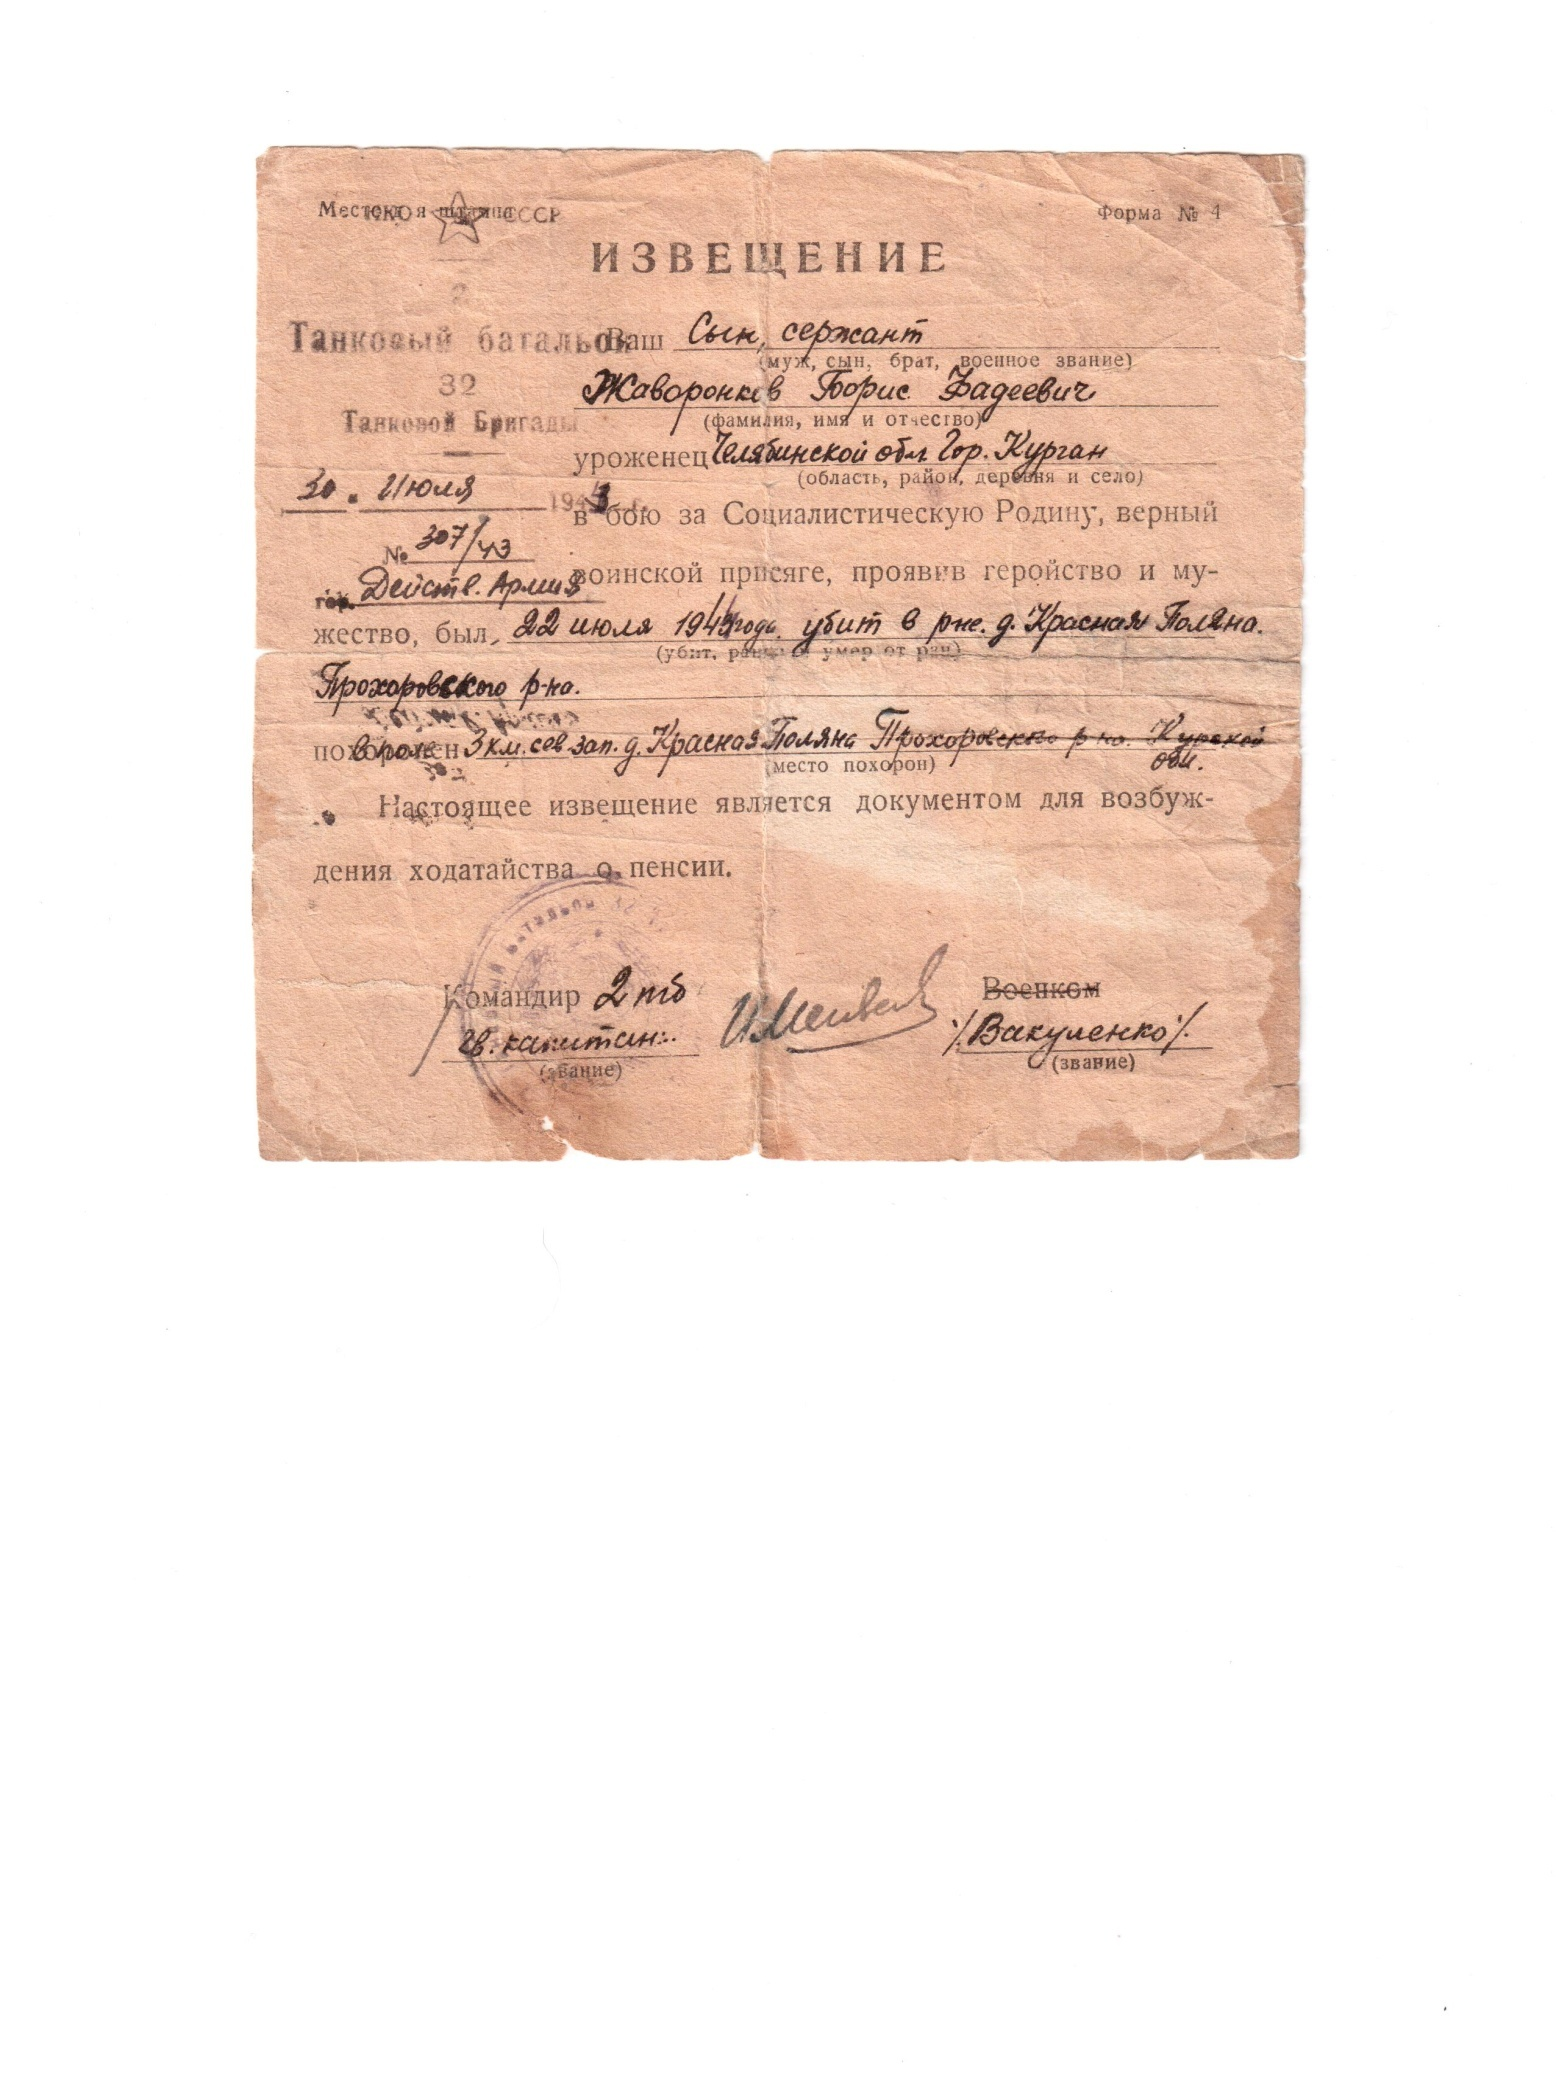 Место для штампа
НКО СССР
Форма № 4
ИЗВЕЩЕНИЕ
2
Танковый батальон
32
Танковой Бригады
30. Июля 1943 г.
№ 307/43
гор. Действ. Армия
Ваш Сын, сержант
(муж, сын, брат, военное звание)
Жаворонков Борис Фадеевич
(фамилия, имя и отчество)
уроженец Челябинской обл. Гор. Курган
(область, район, деревня и село)
в бою за Социалистическую Родину, верный
воинской присяге, проявив геройство и му-
жество, был, 22 июля 194 года. убит в р-не. д. Красная Поляна.
(убит, ранен и умер от ран)
Прохоровского р-на.
похоронен в поле 3 км. сев зап. д. Красная Поляна Прохоровского р-на. Курской
обл.
(место похорон)
Настоящее извещение является документом для возбуж-
дения ходатайства о пенсии.
батальон
Командир 2 тб
гв. капитан
(звание)
Военком
/Вакуленко/.
(звание)